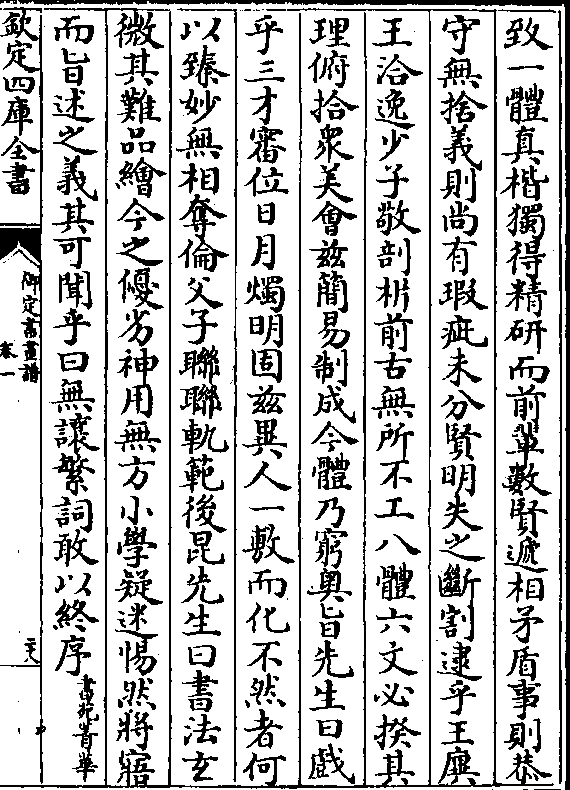 致一體真楷獨得精研而前軰數賢遞相矛盾事則恭
守無捨義則尚有瑕疵未分賢明失之斷割逮乎王廙
王洽逸少子敬剖析前古無所不工八體六文必揆其
理俯拾衆美會兹簡易制成今體乃窮奥旨先生曰戲
乎三才審位日月燭明固兹異人一敷而化不然者何
以臻妙無相奪倫父子聯聯軌範後昆先生曰書法玄
微其難品繪今之優劣神用無方小學疑迷惕然將寤
而旨述之義其可聞乎曰無讓繁詞敢以終序
書苑菁華
欽定四庫全書
御定書畫譜
卷一